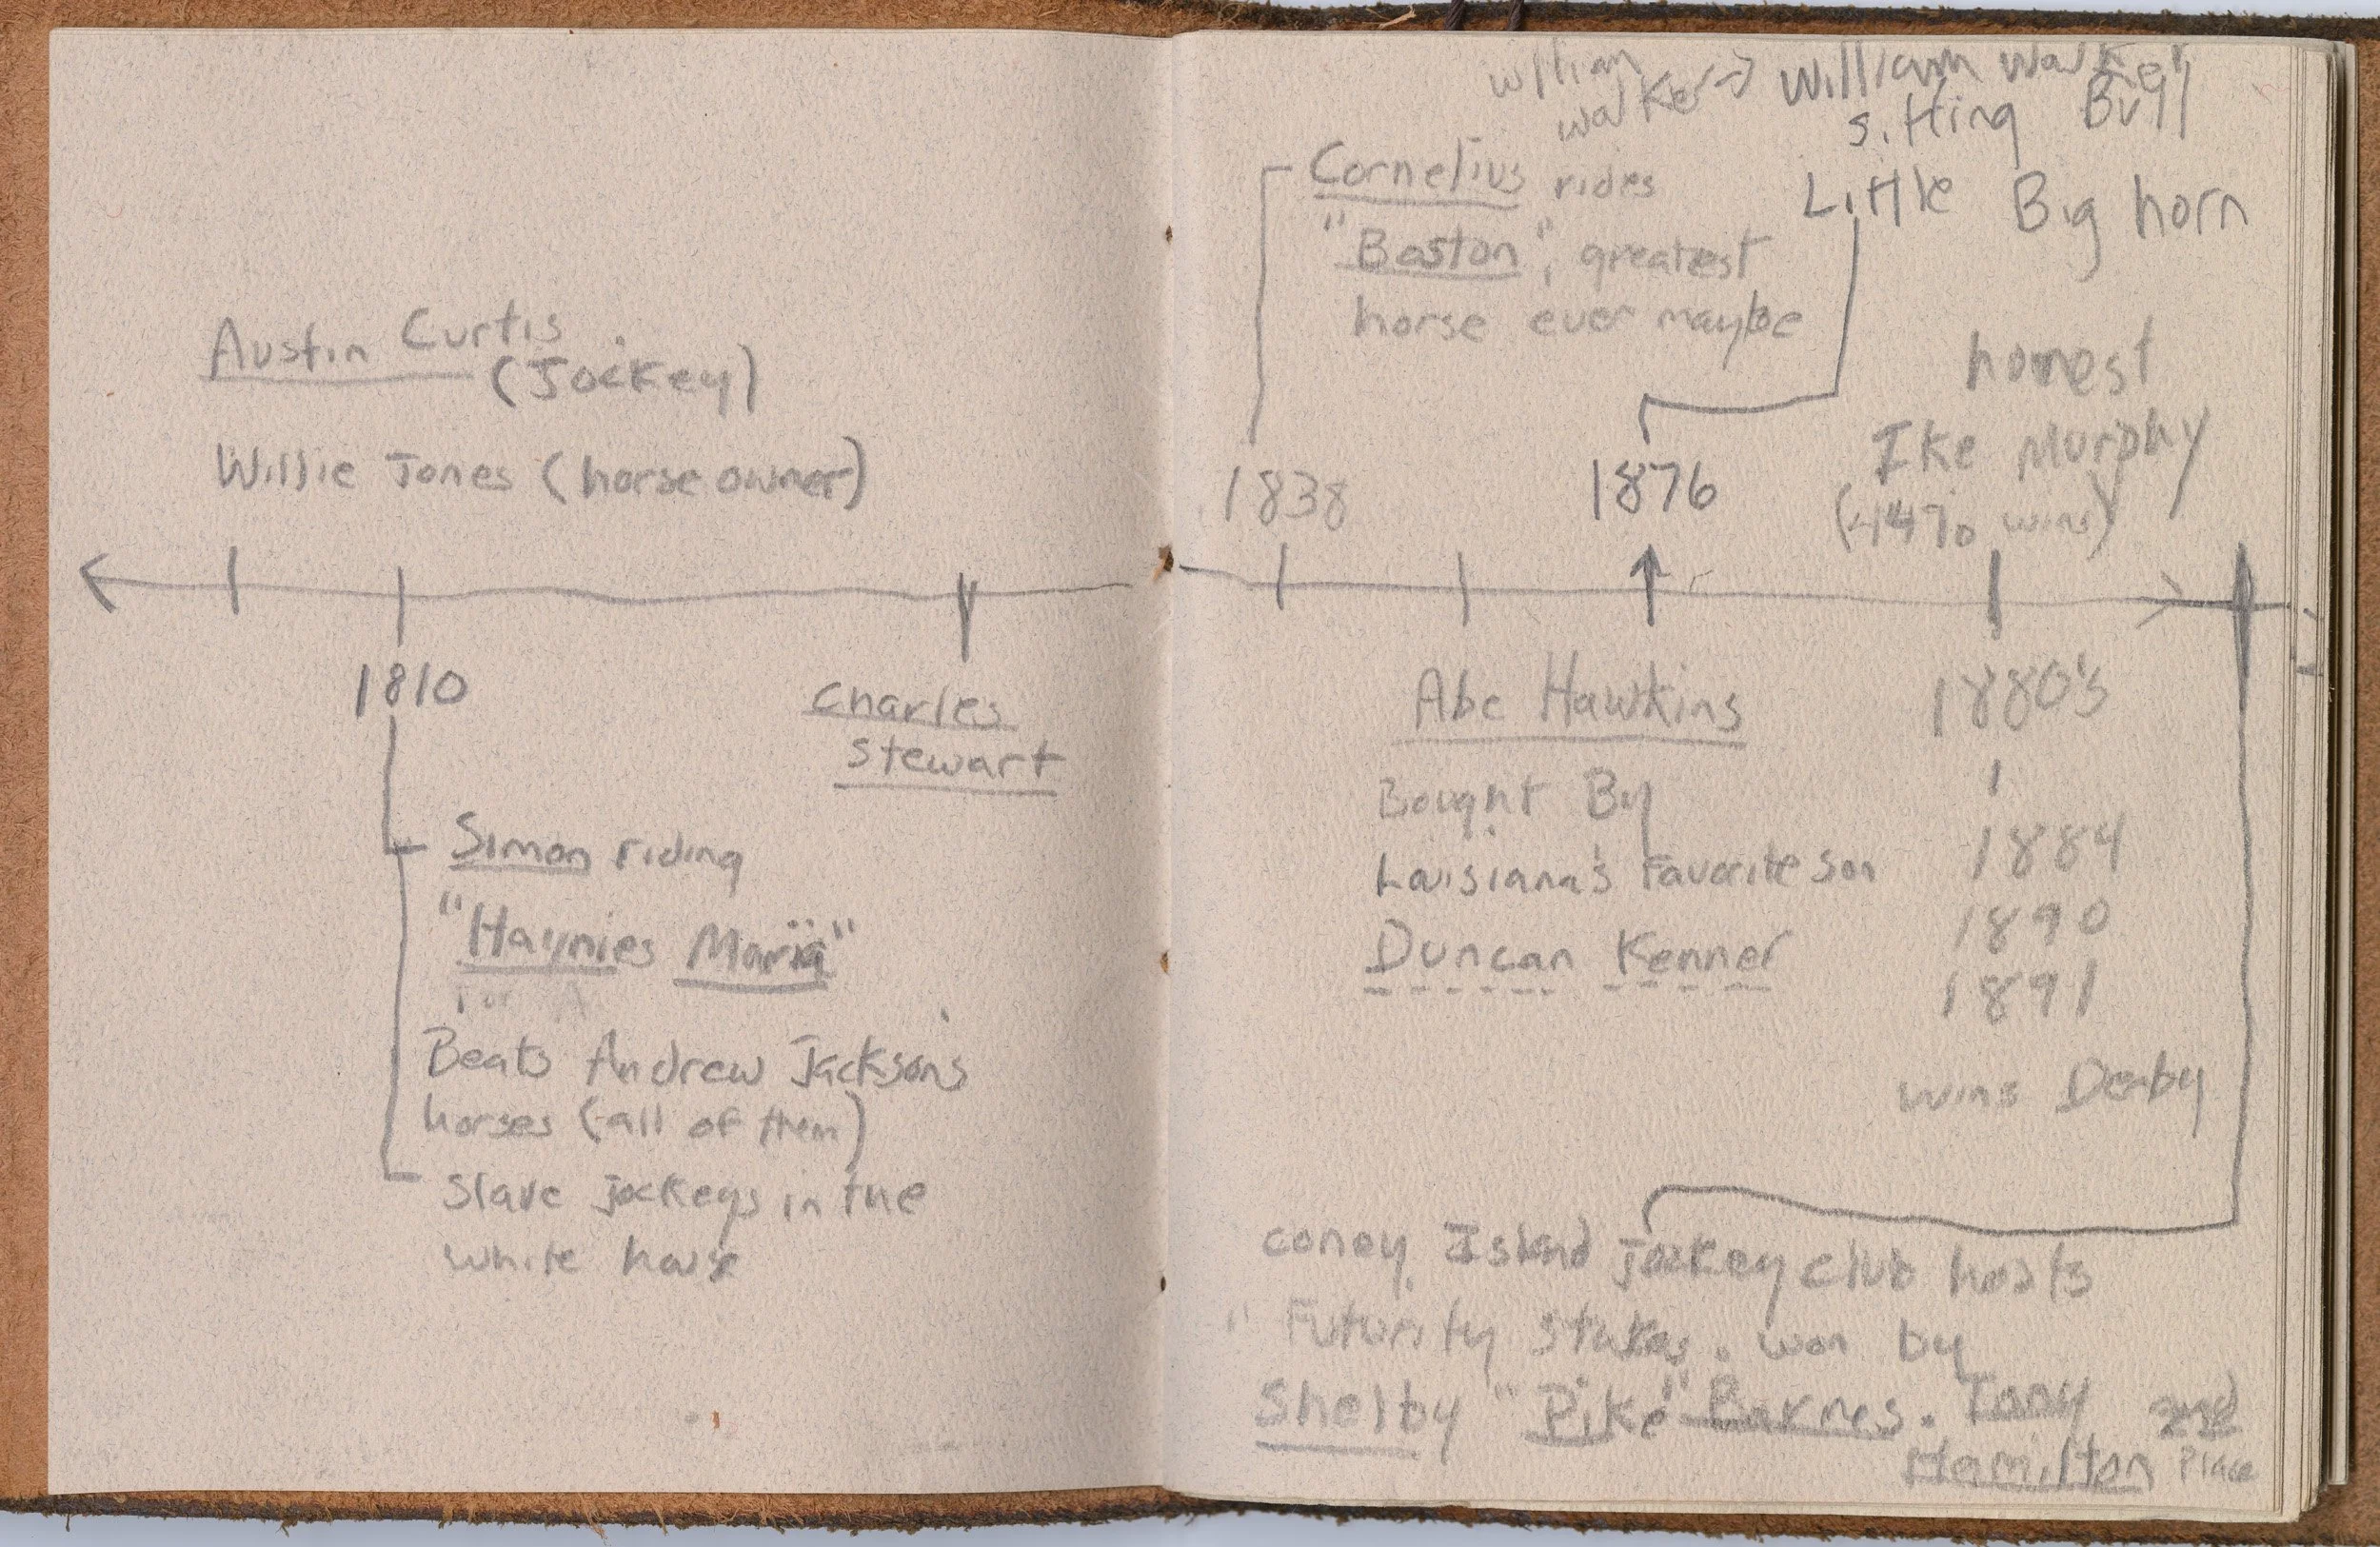 Austin Curtis
(Jockey)
Willie Jones (horse owner)
1810
Charles
Stewart
Simon riding
"Haynies Maria"
Beats Andrew Jacksons
horses (all of them)
Slave jockeys in the
white house
William
walker → William Walker
Sitting Bull
Little Big horn
Cornelius rides
"Boston", greatest
horse ever maybe
honest
Ike Murphy
wins)
1838
1876
Abe Hawkins
Bought By
Louisiana's Favorite son
Duncan Kenner
1880's
1884
1890
1891
wins Derby
coney Island Jockey club hosts
"Futurity Stakes. won by
Shelby "Pike" Barnes. Tony 2nd
Hamilton Place